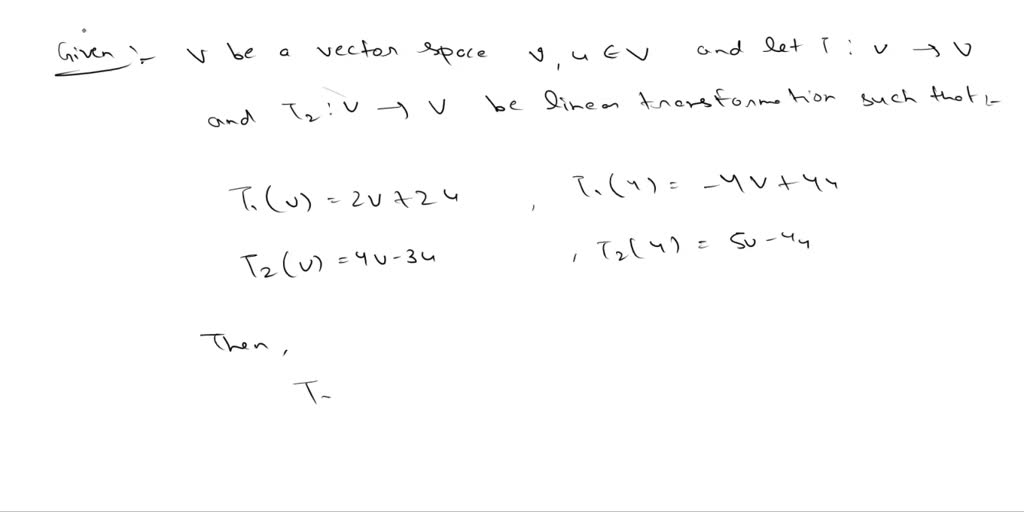 Given :- V be a vector space v, u ∈ V and let T : V → V
and T₂ : V → V be linear transformation such that :-
T₁(v) = 2v + 2u , T₁(u) = -4v + 4u
T₂(v) = 4v - 3u , T₂(u) = 5v - 4u
Then,
T